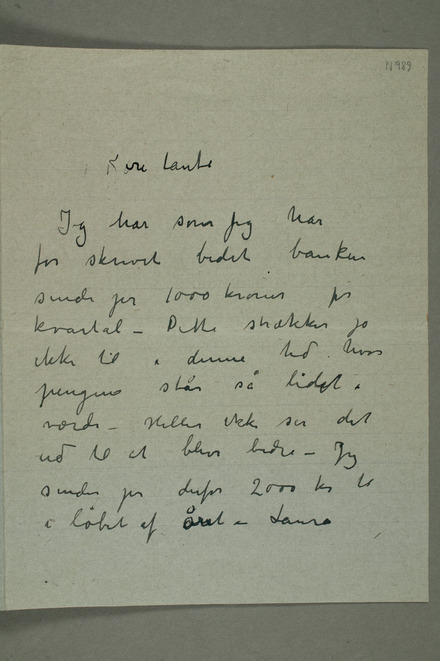 N 989
Kære tante
Jeg har som jeg har
før skrevet bedet banken
sende jer 1000 kroner pr
kvartal – Dette strækker jo
ikke til i denne tid hvor
pengene står så lidet i
værdi – Heller ikke ser det
ud til at blive bedre – Jeg
sender jer derfor 2000 kr til
i løbet af året – Laura